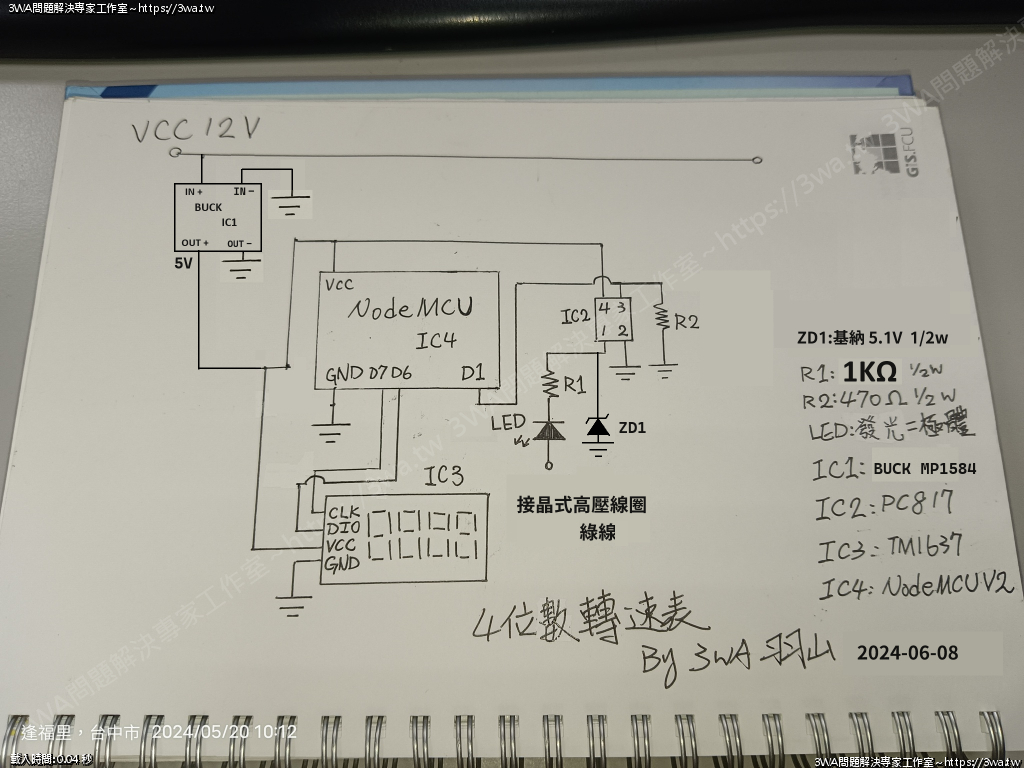 3WA問題解決專家工作室~https://3wa.tw
VCC 12V
GIS.FCU
IN +
IN -
BUCK
IC1
OUT +
OUT -
5V
VCC
NodeMCU
IC4
GND D7 D6
D1
IC2
4 3
1 2
R2
R1
LED
ZD1
IC3
CLK
DIO
VCC
GND
接晶式高壓線圈
綠線
ZD1:基納 5.1V 1/2w
R1: 1KΩ 1/2W
R2: 470Ω 1/2W
LED:發光二極體
IC1: BUCK MP1584
IC2: PC817
IC3: TM1637
IC4: NodeMCU V2
4位數轉速表
By 3WA 羽山
2024-06-08
逢福里，台中市 2024/05/20 10:12
載入時間:0.04 秒
3WA問題解決專家工作室~https://3wa.tw